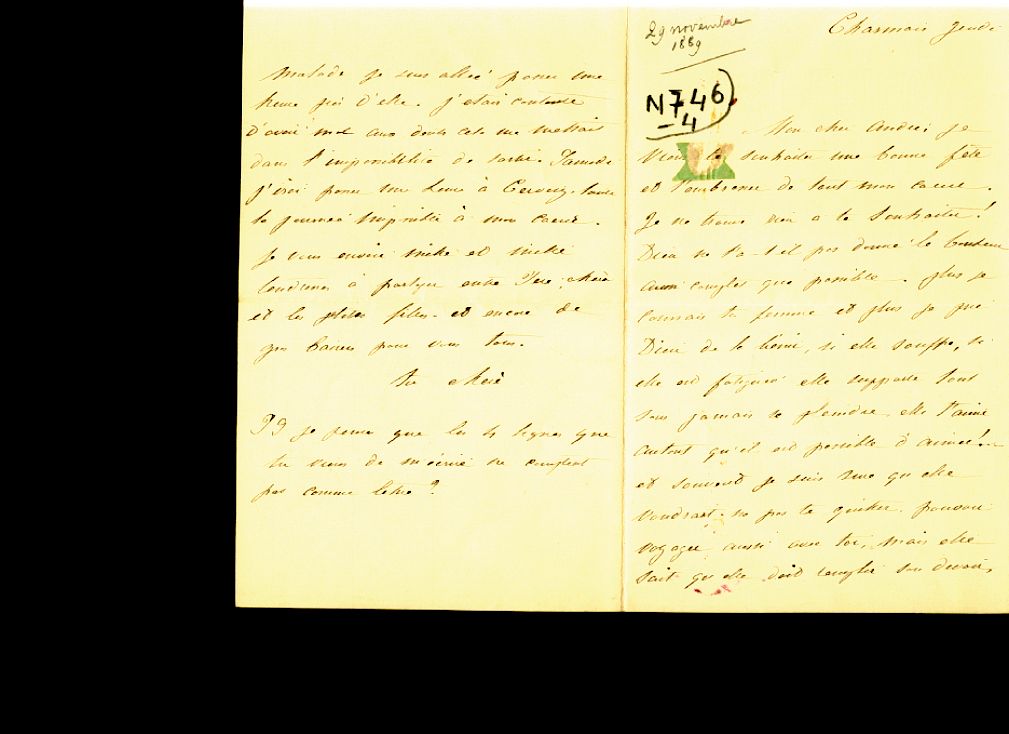 29 novembre
1889
Charmais Jeudi
N746
-4
Mon cher André, je
viens te souhaiter une bonne fête
et t'embrasser de tout mon cœur.
Je ne trouve rien a te souhaiter!
Dieu ne t'a-t-il pas donné le bonheur
aussi complet que possible. plus je
connais ta femme et plus je prie
Dieu de la bénir, si elle souffre, si
elle est fatiguée elle supporte tout
sans jamais se plaindre, elle t'aime
autant qu'il est possible d'aimer!
et souvent je suis sure qu'elle
voudrait ne pas te quitter. pouvoir
voyager aussi avec toi, mais elle
sait qu'elle doit remplir son devoir,
malade je suis allée passer une
heure près d'elle. j'étais contente
d'avoir mal aux dents cela me mettait
dans l'impossibilité de sortir. Samedi
j'irai passer une heure à toute
la journée impossible à mon cœur.
Je vous envoie mille et mille
tendresses à partager entre mère
et les petites filles. et encore de
gros baisers pour vous tous.
ta mère
PS je pense que les 4 lignes que
tu viens de m'écrire ne comptent
pas comme lettre?